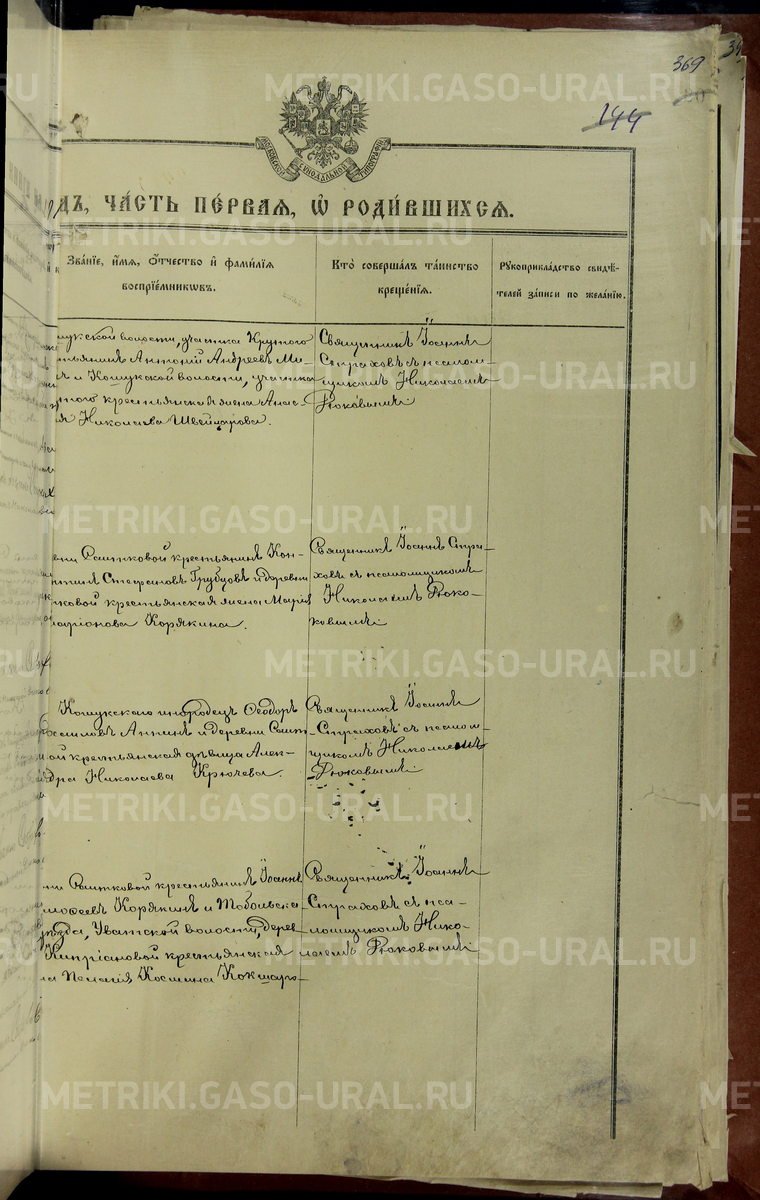 369
144
МОСКОВСКОЙ СѴНОДАЛЬНОЙ ТИПОГРАФІИ
ДЪ, ЧА́СТЬ ПЕ́РВАЯ, Ѡ҆ РОДИ́ВШИХСЯ.
Зва́нїе, и҆́мя, ѻ҆́тчество и҆ фами́лїя
воспрїе́мникѡвъ.
Кто̀ соверша́лъ та́инство
креще́нїя.
Рꙋкоприкла́дство свидѣ́-
телей за́писи по жела́нїю.
укской волости, участка Крутого
тьянинъ Антоній Андреевъ Ми-
и Кошукской волости, участка
того крестьянская жена Анас-
я Николаева Швейцарова.
Священникъ Іоаннъ
Страховъ съ псалом-
щикомъ Николаемъ
Рюковымъ
вни Саитковой крестьянинъ Кон-
тинъ Стефановъ Грубцовъ и деревни
тковой крестьянская жена Марія
ларіонова Корякина.
Священникъ Іоаннъ Стра-
ховъ съ псаломщикомъ
Николаемъ Рюко-
ковымъ
Кошукскаго инородецъ Ѳеодоръ
асиловъ Аптинъ и деревни Саит-
ой крестьянская дѣвица Алек-
дра Николаева Крючева.
Священникъ Іоаннъ
Страховъ съ псалом-
щикомъ Николаемъ
Рюковымъ
ни Саитковой крестьянинъ Іоаннъ
моѳеевъ Корякинъ и Тобольска-
уѣзда, Уватской волости, дерев-
Кипріановой крестьянская
на Пелагія Косьмина Кокшаро-
Священникъ Іоаннъ
Страховъ съ пса-
ломщикомъ Нико-
лаемъ Рюковымъ
METRIKI.GASO-URAL.RU